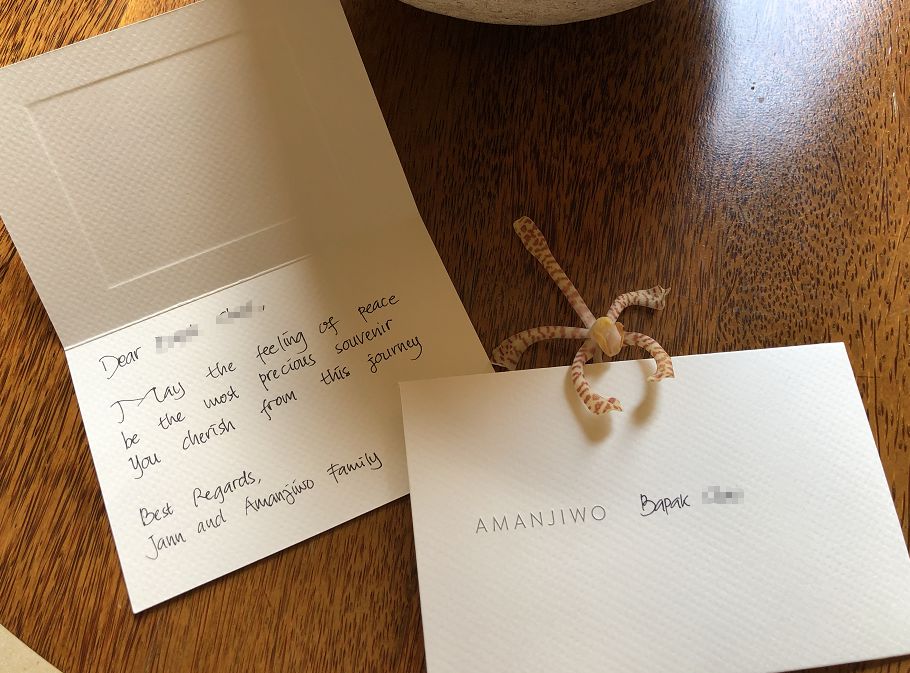 Dear
May the feeling of peace
be the most precious souvenir
you cherish from this journey
Best Regards,
Jann and Amanjiwo Family
AMANJIWO Bapak